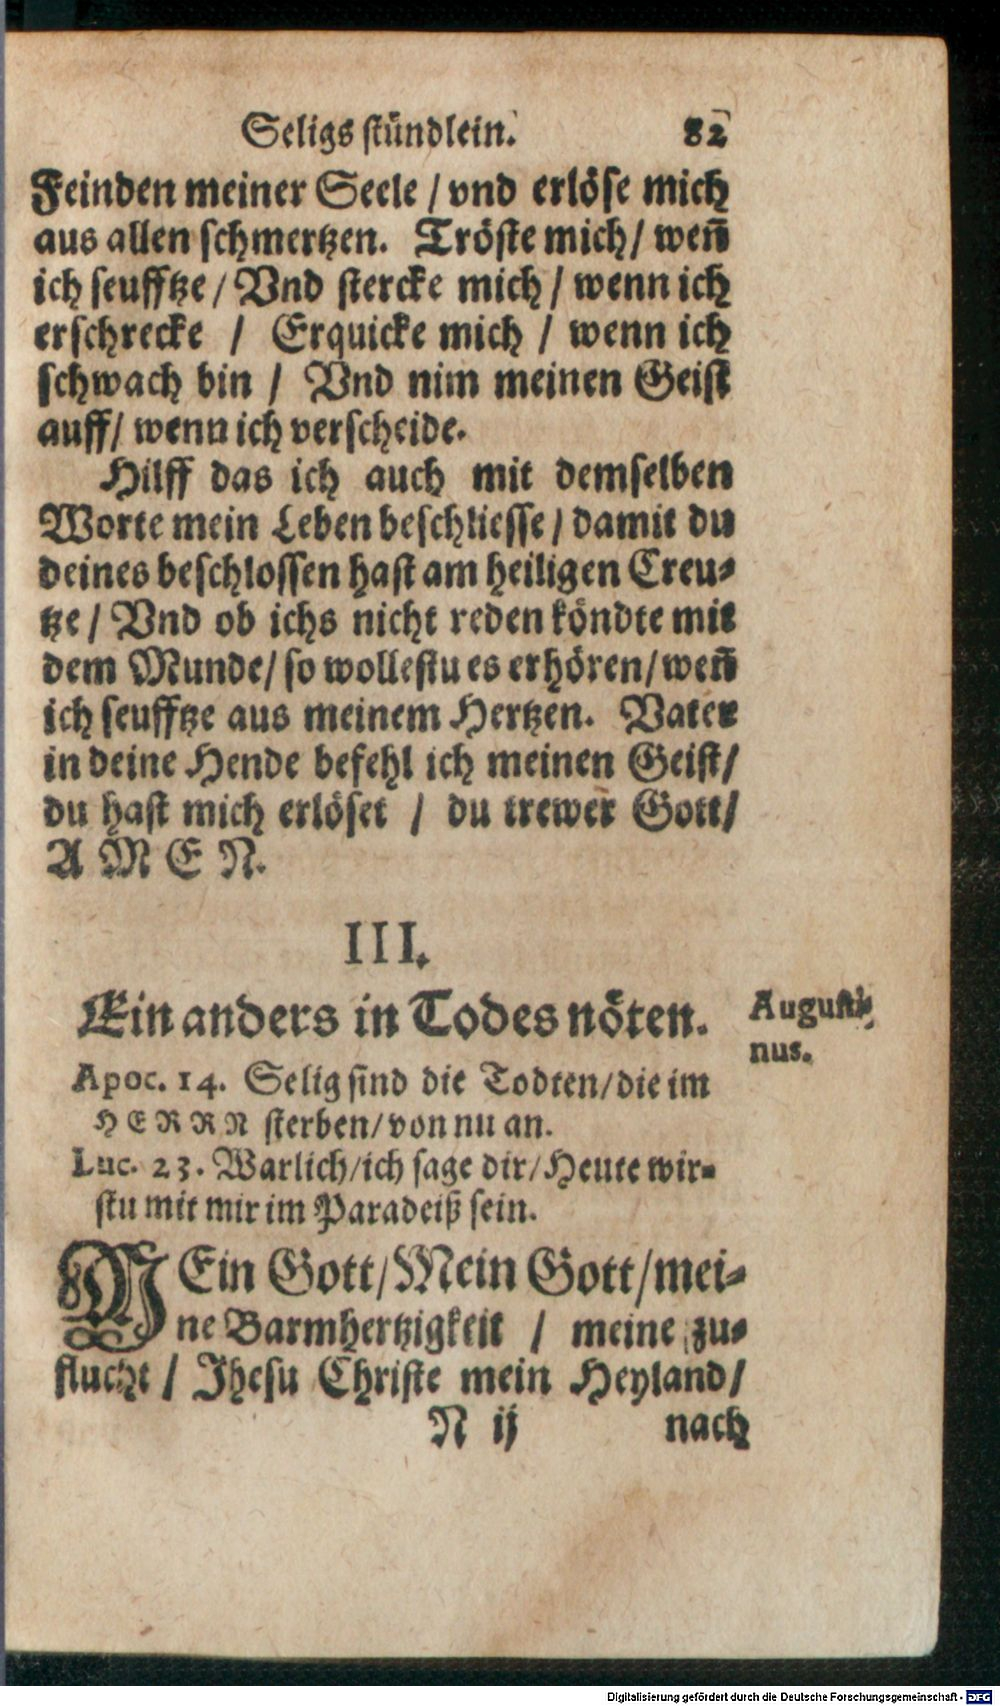 Seligs stündlein. 82
Feinden meiner Seele / vnd erlöse mich
aus allen schmertzen. Tröste mich / weñ
ich seufftze / Vnd stercke mich / wenn ich
erschrecke / Erquicke mich / wenn ich
schwach bin / Vnd nim meinen Geist
auff / wenn ich verscheide.
Hilff das ich auch mit demselben
Worte mein Leben beschliesse / damit du
deines beschlossen hast am heiligen Creu-
tze / Vnd ob ichs nicht reden köndte mit
dem Munde / so wollestu es erhören / weñ
ich seufftze aus meinem Hertzen. Vater
in deine Hende befehl ich meinen Geist /
du hast mich erlöset / du trewer Gott /
A M E N.
III.
Ein anders in Todes nöten.
Augusti-
nus.
Apoc. 14. Selig sind die Todten / die im
HERRN sterben / von nu an.
Luc. 23. Warlich / ich sage dir / Heute wir-
stu mit mir im Paradeiß sein.
MEin Gott / Mein Gott / mei-
ne Barmhertzigkeit / meine zu-
flucht / Jhesu Christe mein Heyland /
N ij nach
Digitalisierung gefördert durch die Deutsche Forschungsgemeinschaft - DFG